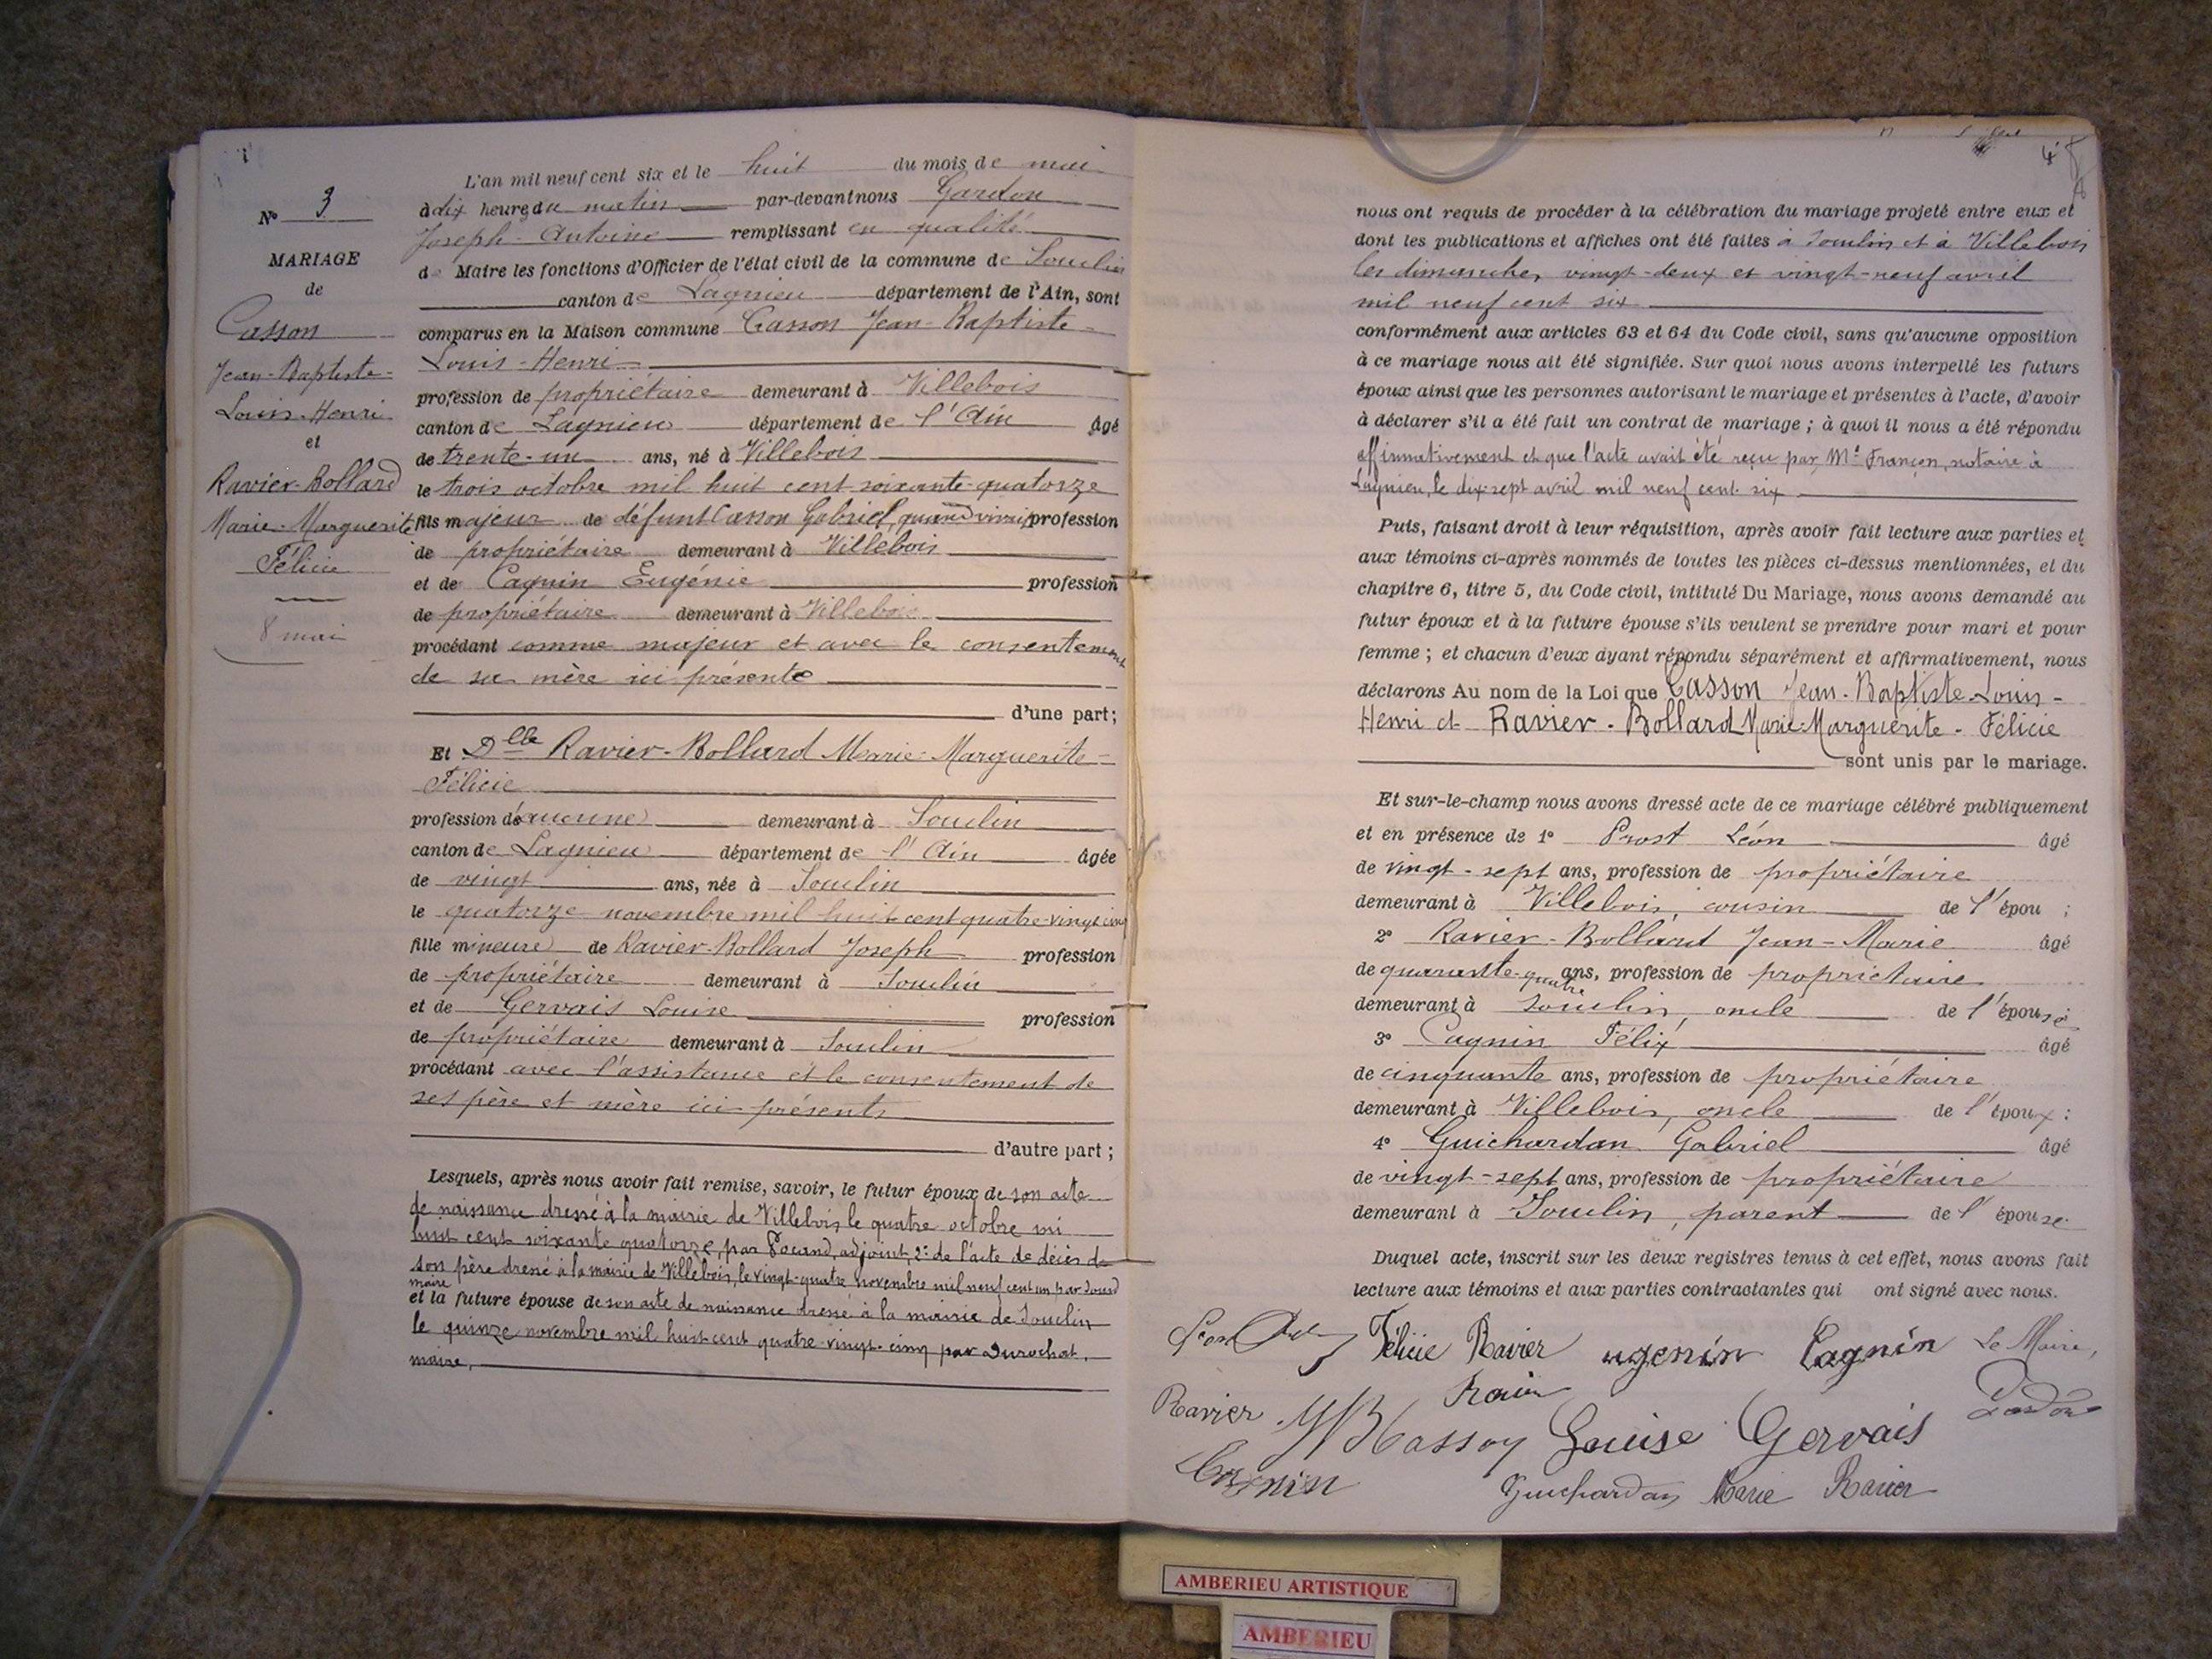 N° 3
MARIAGE
de
Casson
Jean-Baptiste-
Louis-Henri
et
Ravier-Bollard
Marie-Marguerite
Félicie
8 mai
L'an mil neuf cent six et le huit du mois de mai
à dix heures du matin par-devant nous Gardon
Joseph-Antoine remplissant en qualité
de Maire les fonctions d'Officier de l'état civil de la commune de Souclin
canton de Lagnieu département de l'Ain, sont
comparus en la Maison commune Casson Jean-Baptiste-
Louis-Henri
profession de propriétaire demeurant à Villebois
canton de Lagnieu département de l'Ain âgé
de trente-un ans, né à Villebois
le trois octobre mil huit cent soixante-quatorze
fils majeur de défunt Casson Gabriel, quand vivait profession
de propriétaire demeurant à Villebois
et de Cagnin Eugénie profession
de propriétaire demeurant à Villebois
procédant comme majeur et avec le consentement
de sa mère ici présente
d'une part;
Et Dlle Ravier-Bollard Marie-Marguerite-
Félicie
profession d'aucune demeurant à Souclin
canton de Lagnieu département de l'Ain âgée
de vingt ans, née à Souclin
le quatorze novembre mil huit cent quatre-vingt cinq
fille mineure de Ravier-Bollard Joseph profession
de propriétaire demeurant à Souclin
et de Gervais Louise profession
de propriétaire demeurant à Souclin
procédant avec l'assistance et le consentement de
ses père et mère ici présents
d'autre part;
Lesquels, après nous avoir fait remise, savoir, le futur époux de son acte
de naissance dressé à la mairie de Villebois le quatre octobre mi
huit cent soixante quatorze, par adjoint, 2° de l'acte de décès de
son père dressé à la mairie de Villebois, le vingt-quatre novembre mil neuf cent un par
maire
et la future épouse de son acte de naissance dressé à la mairie de Souclin
le quinze novembre mil huit cent quatre-vingt-cinq par Durochat
maire,
4
nous ont requis de procéder à la célébration du mariage projeté entre eux et
dont les publications et affiches ont été faites à Souclin et à Villebois
les dimanches vingt-deux et vingt-neuf avril
mil neuf cent six
conformément aux articles 63 et 64 du Code civil, sans qu'aucune opposition
à ce mariage nous ait été signifiée. Sur quoi nous avons interpellé les futurs
époux ainsi que les personnes autorisant le mariage et présentes à l'acte, d'avoir
à déclarer s'il a été fait un contrat de mariage; à quoi il nous a été répondu
affirmativement et que l'acte avait été reçu par Me Françon, notaire à
Lagnieu, le dix-sept avril mil neuf cent six
Puis, faisant droit à leur réquisition, après avoir fait lecture aux parties et
aux témoins ci-après nommés de toutes les pièces ci-dessus mentionnées, et du
chapitre 6, titre 5, du Code civil, intitulé Du Mariage, nous avons demandé au
futur époux et à la future épouse s'ils veulent se prendre pour mari et pour
femme; et chacun d'eux ayant répondu séparément et affirmativement, nous
déclarons Au nom de la Loi que Casson Jean-Baptiste-Louis-
Henri et Ravier-Bollard Marie-Marguerite-Félicie
sont unis par le mariage.
Et sur-le-champ nous avons dressé acte de ce mariage célébré publiquement
et en présence de 1° Prost Léon âgé
de vingt-sept ans, profession de propriétaire
demeurant à Villebois, cousin de l'épou ;
2° Ravier-Bollard Jean-Marie âgé
de quarante-quatre ans, profession de propriétaire
demeurant à Souclin, oncle de l'épouse
3° Cagnin Félix âgé
de cinquante ans, profession de propriétaire
demeurant à Villebois, oncle de l'époux:
4° Guichardan Gabriel âgé
de vingt-sept ans, profession de propriétaire
demeurant à Souclin, parent de l'épouse.
Duquel acte, inscrit sur les deux registres tenus à cet effet, nous avons fait
lecture aux témoins et aux parties contractantes qui ont signé avec nous.
Félicie Ravier ugenin Cagnin Le Maire,
Ravier Gardon
Louise Gervais
Guichardan Marie Ravier
AMBERIEU ARTISTIQUE
AMBERIEU